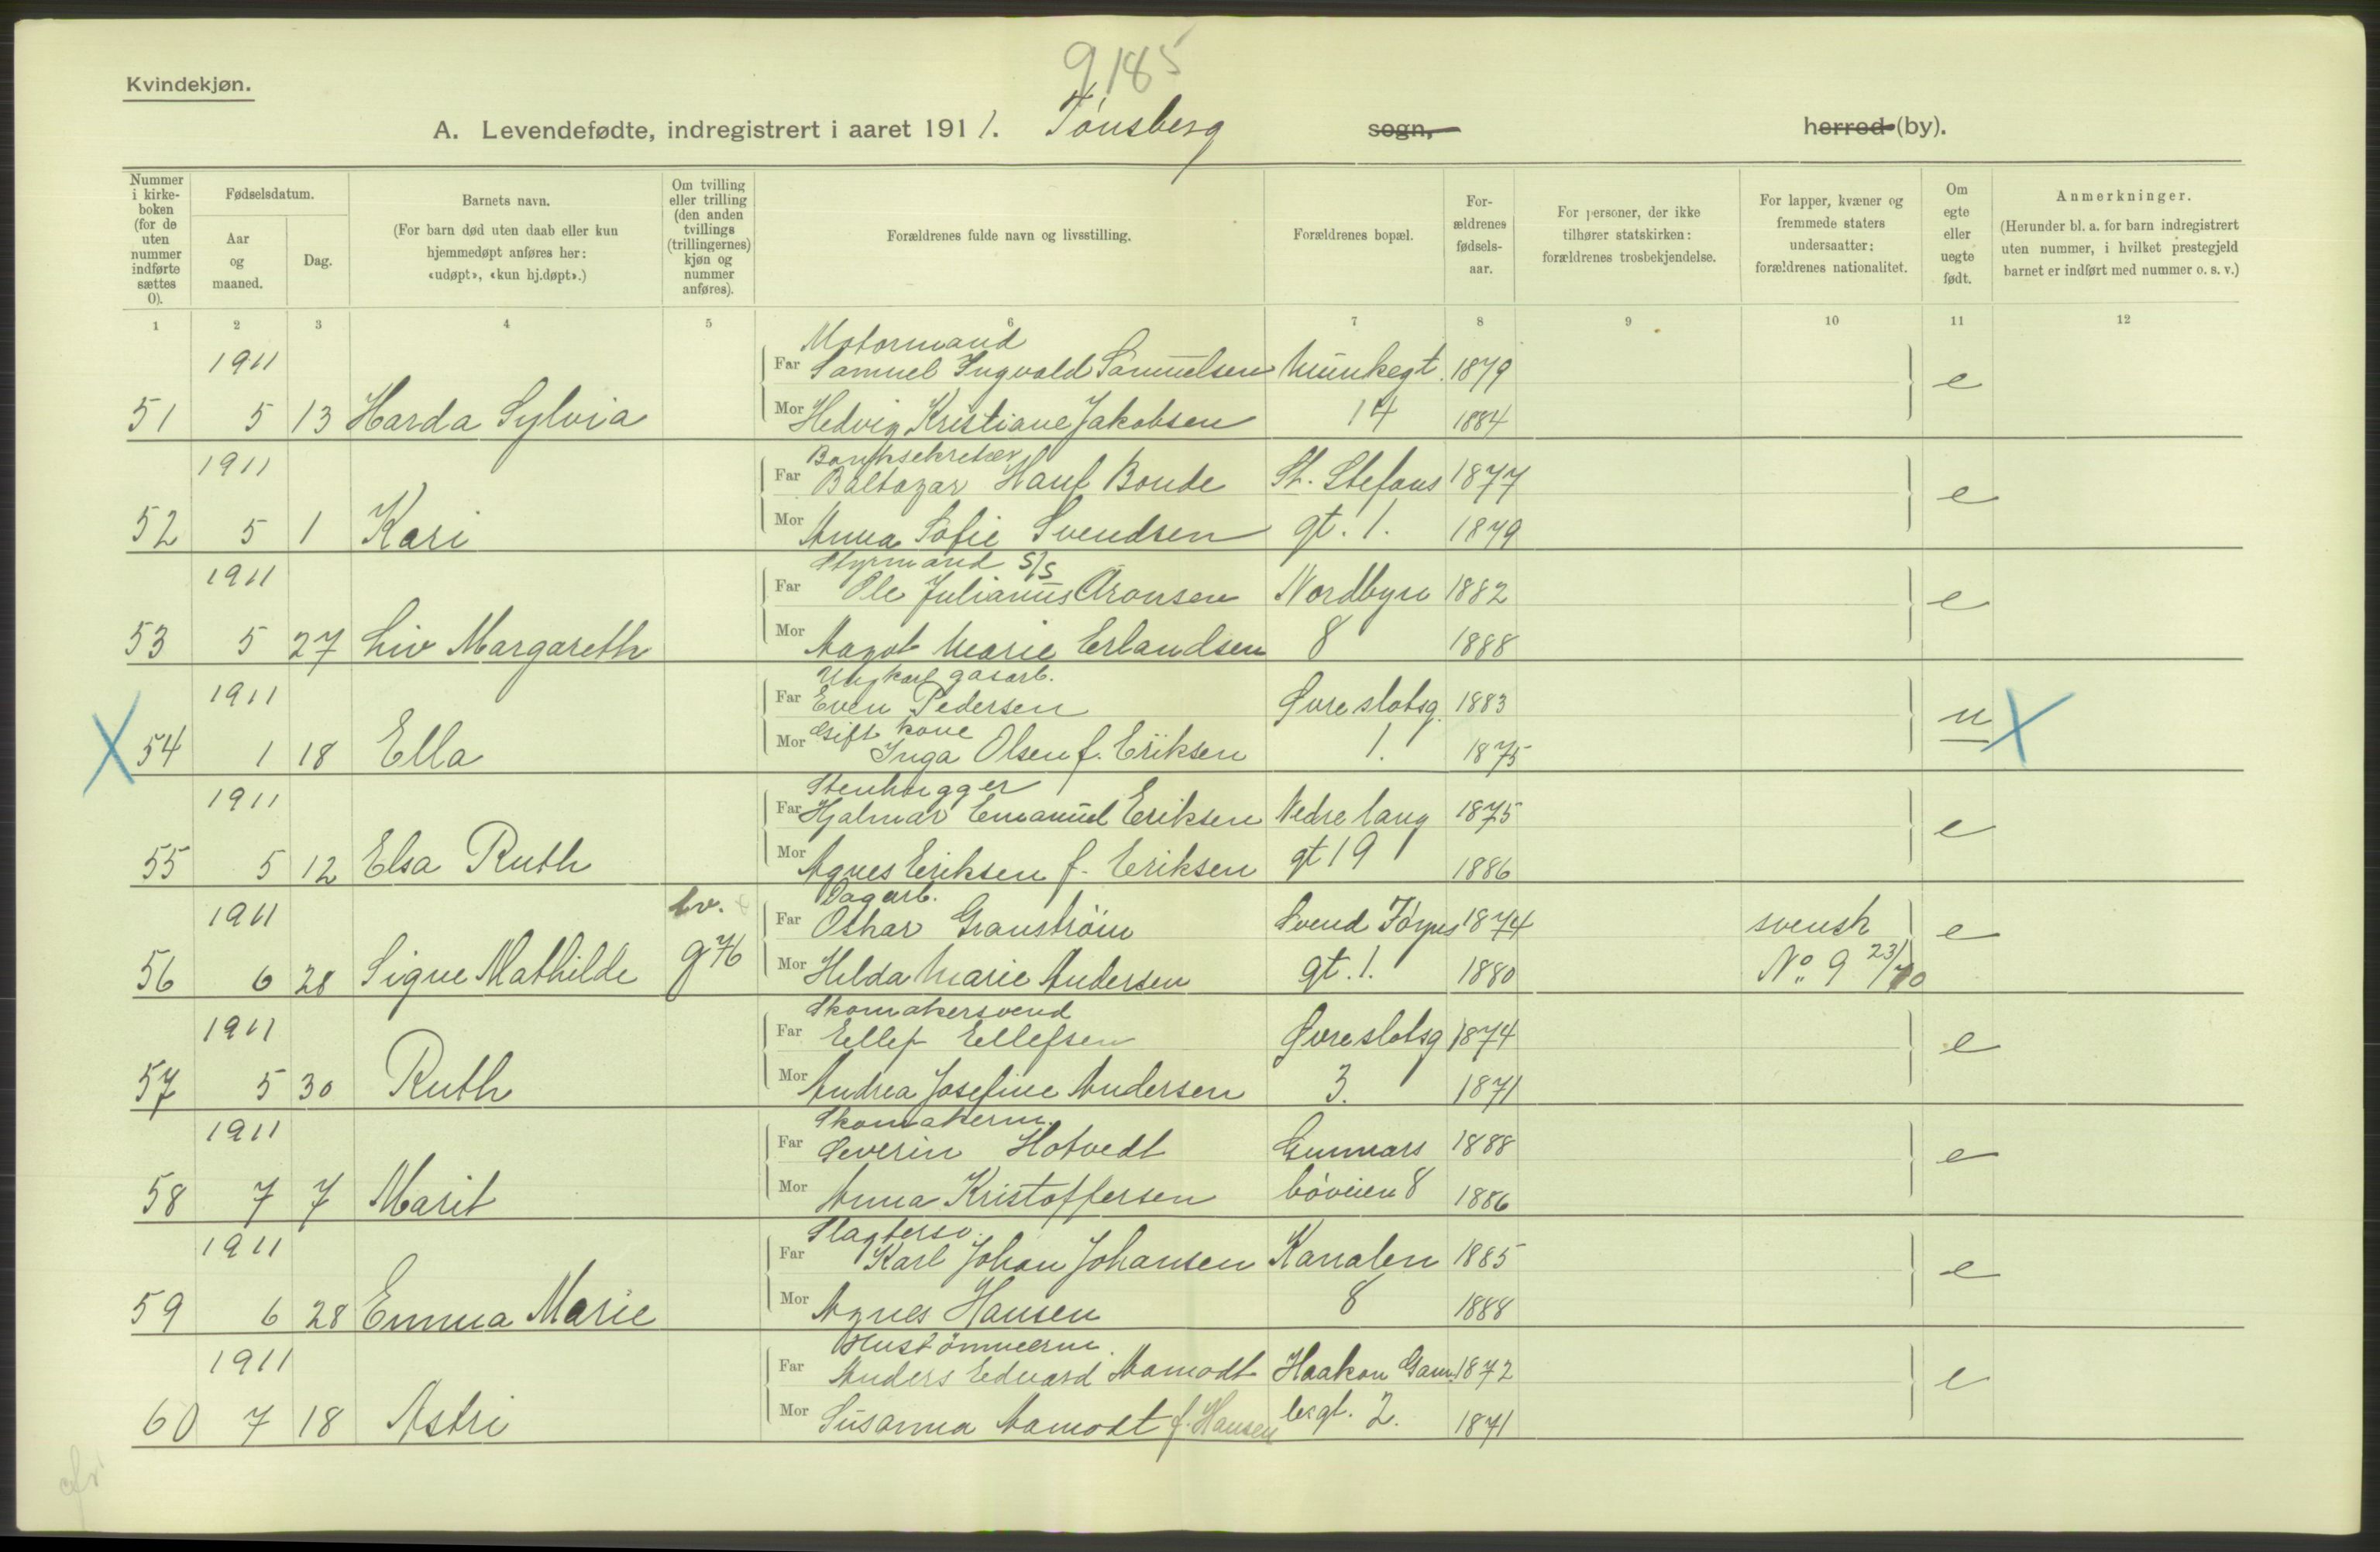 9185
Kvindekjøn.
A. Levendefødte, indregistrert i aaret 1911. Tønsberg sogn, herred (by).
Nummer i kirke-boken (for de uten nummer indførte sættes 0).
Fødselsdatum.
Aar og maaned.
Dag.
Barnets navn.
(For barn død uten daab eller kun hjemmedøpt anføres her: «udøpt», «kun hj.døpt».)
Om tvilling eller trilling (den anden tvillings (trillingernes) kjøn og nummer anføres).
Forældrenes fulde navn og livsstilling.
Forældrenes bopæl.
For-ældrenes fødsels-aar.
For personer, der ikke tilhører statskirken: forældrenes trosbekjendelse.
For lapper, kvæner og fremmede staters undersaatter: forældrenes nationalitet.
Om egte eller uegte født.
Anmerkninger.
(Herunder bl. a. for barn indregistrert uten nummer, i hvilket prestegjeld barnet er indført med nummer o. s. v.)
1 2 3 4 5 6 7 8 9 10 11 12
Motormand
1911 Far Samuel Ingvald Samuelsen Munkegt. 1879 e
51 5 13 Harda Sylvia Mor Hedvig Kristiane Jakobsen 14 1884
Banksekretær
1911 Far Baltazar Hauf Bonde St. Stefans 1877 e
52 5 1 Kari Mor Anna Sofie Svendsen gt. 1. 1879
Styrmand S/S
1911 Far Ole Julianus Aronsen Nordbyen 1882 e
53 5 27 Liv Margareth Mor Aagot Marie Erlandsen 8 1888
Ungkarl gasarb.
1911 Far Even Pedersen Øvre slotsg. 1883 u X
Gift kone
X 54 1 18 Ella Mor Inga Olsen f. Eriksen 1. 1875
Stenhugger
1911 Far Hjalmar Emanuel Eriksen Nedre lang 1875 e
55 5 12 Elsa Ruth Mor Agnes Eriksen f. Eriksen gt 19 1886
Dagarb.
1911 tv. Far Oskar Granström Svend Foyns 1874 svensk e
56 6 28 Signe Mathilde g 76 Mor Hilda Marie Andersen gt. 1. 1880 No. 9 23/10
Skomakersvend
1911 Far Ellef Ellefsen Øvre slotsg 1874 e
57 5 30 Ruth Mor Andrea Josefine Andersen 3. 1871
Skomakerm.
1911 Far Severin Hotvedt Gunnars 1888 e
58 7 7 Marit Mor Anna Kristoffersen bøveien 8 1886
Slagtersv.
1911 Far Karl Johan Johansen Kanalen 1885 e
59 6 28 Emma Marie Mor Agnes Hansen 8 1888
Hustømmerm.
1911 Far Anders Edvard Aamodt Haakon Gam 1872 e
60 7 18 Astri Mor Susanna Aamodt f. Hansen lesgt. 2. 1871